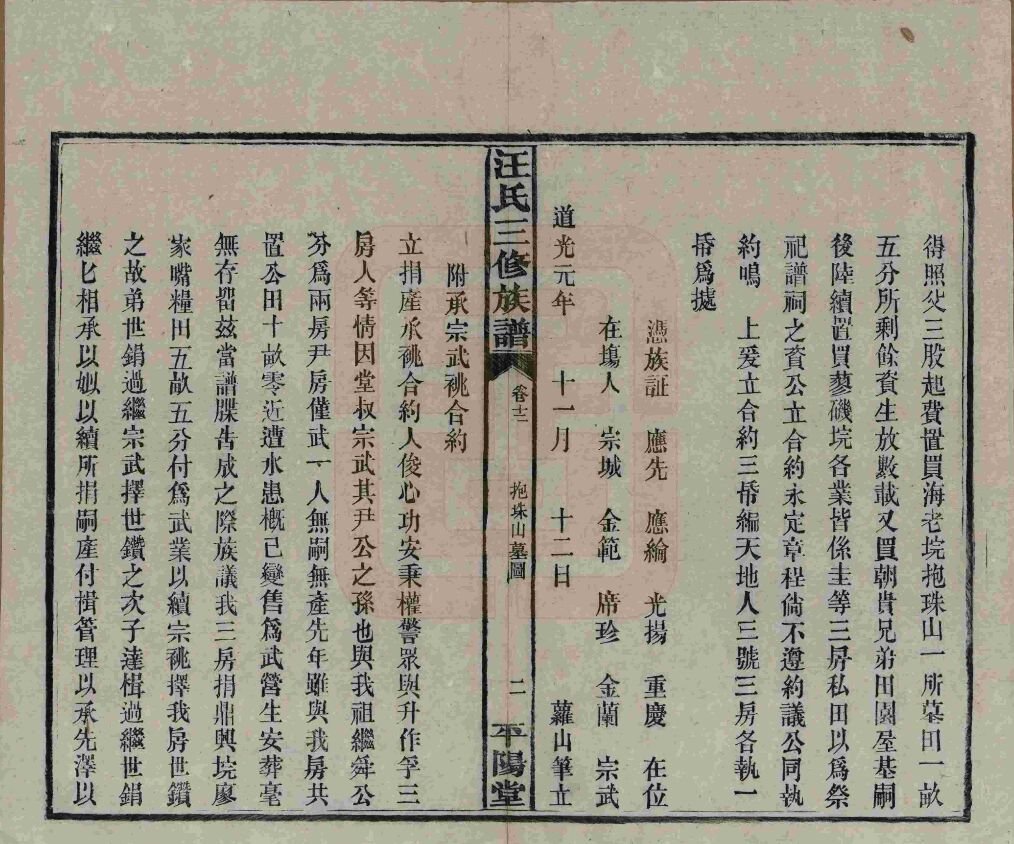 得照父三股起費置買海老垸抱珠山一所墓田一畝
五分所剩餘資生放數載又買朝貴兄弟田園屋基嗣
後陸續置買蓼磯垸各業皆係圭等三房私田以爲祭
祀譜祠之資公立合約永定章程倘不遵約議公同執
約鳴　上爰立合約三帋編天地人三號三房各執一
帋爲據
憑族証　應先　應綸　光揚　重慶　在位
在塲人　宗城　金範　席珍　金蘭　宗武
道光元年　十一月　十二日　蘿山筆立
汪氏三修族譜　卷十二　抱珠山墓圖　二　平陽堂
附承宗武祧合約
立捐產承祧合約人俊心功安秉權警眾與升作孚三
房人等情因堂叔宗武其尹公之孫也與我祖繼舜公
分爲兩房尹房僅武一人無嗣無產先年雖與我房共
置公田十畝零近遭水患概已變售爲武營生安葬毫
無存畱茲當譜牒告成之際族議我三房捐鼎興垸廖
家嘴糧田五畝五分付爲武業以續宗祧擇我房世鑽
之故弟世鋗過繼宗武擇世鑽之次子達楫過繼世鋗
繼匕相承以姒以續所捐嗣產付楫管理以承先澤以